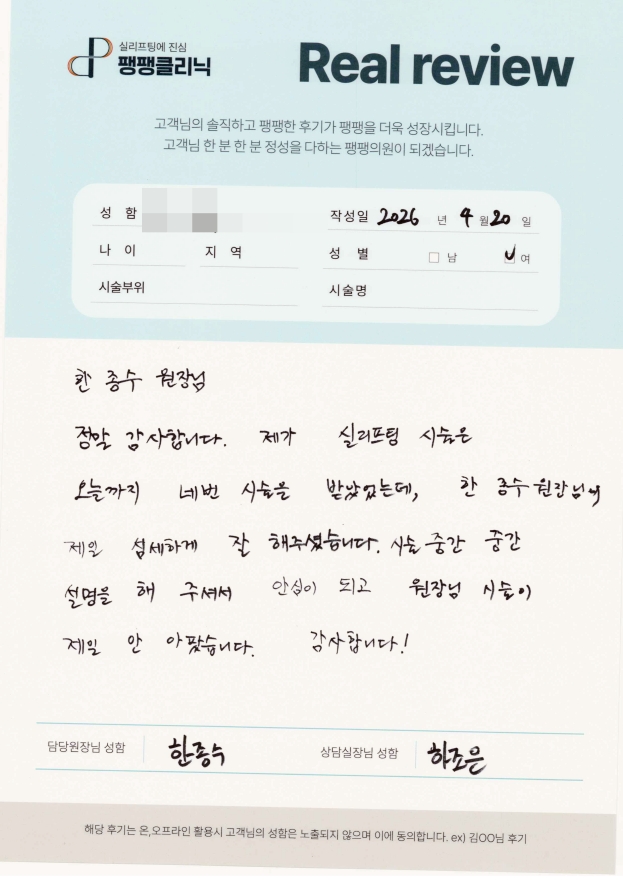 실리프팅에 진심
팽팽클리닉
Real review
고객님의 솔직하고 팽팽한 후기가 팽팽을 더욱 성장시킵니다.
고객님 한 분 한 분 정성을 다하는 팽팽의원이 되겠습니다.
성 함 작성일 2026 년 4 월 20 일
나 이 지 역 성 별 남 여
시술부위 시술명
한 종수 원장님
정말 감사합니다. 제가 실리프팅 시술은
오늘까지 네번 시술을 받았었는데, 한 종수 원장님이
제일 섬세하게 잘 해주셨습니다. 시술 중간 중간
설명을 해 주셔서 안심이 되고 원장님 시술이
제일 안 아팠습니다. 감사합니다!
담당원장님 성함 한종수 상담실장님 성함 하조은
해당 후기는 온,오프라인 활용시 고객님의 성함은 노출되지 않으며 이에 동의합니다. ex) 김OO님 후기